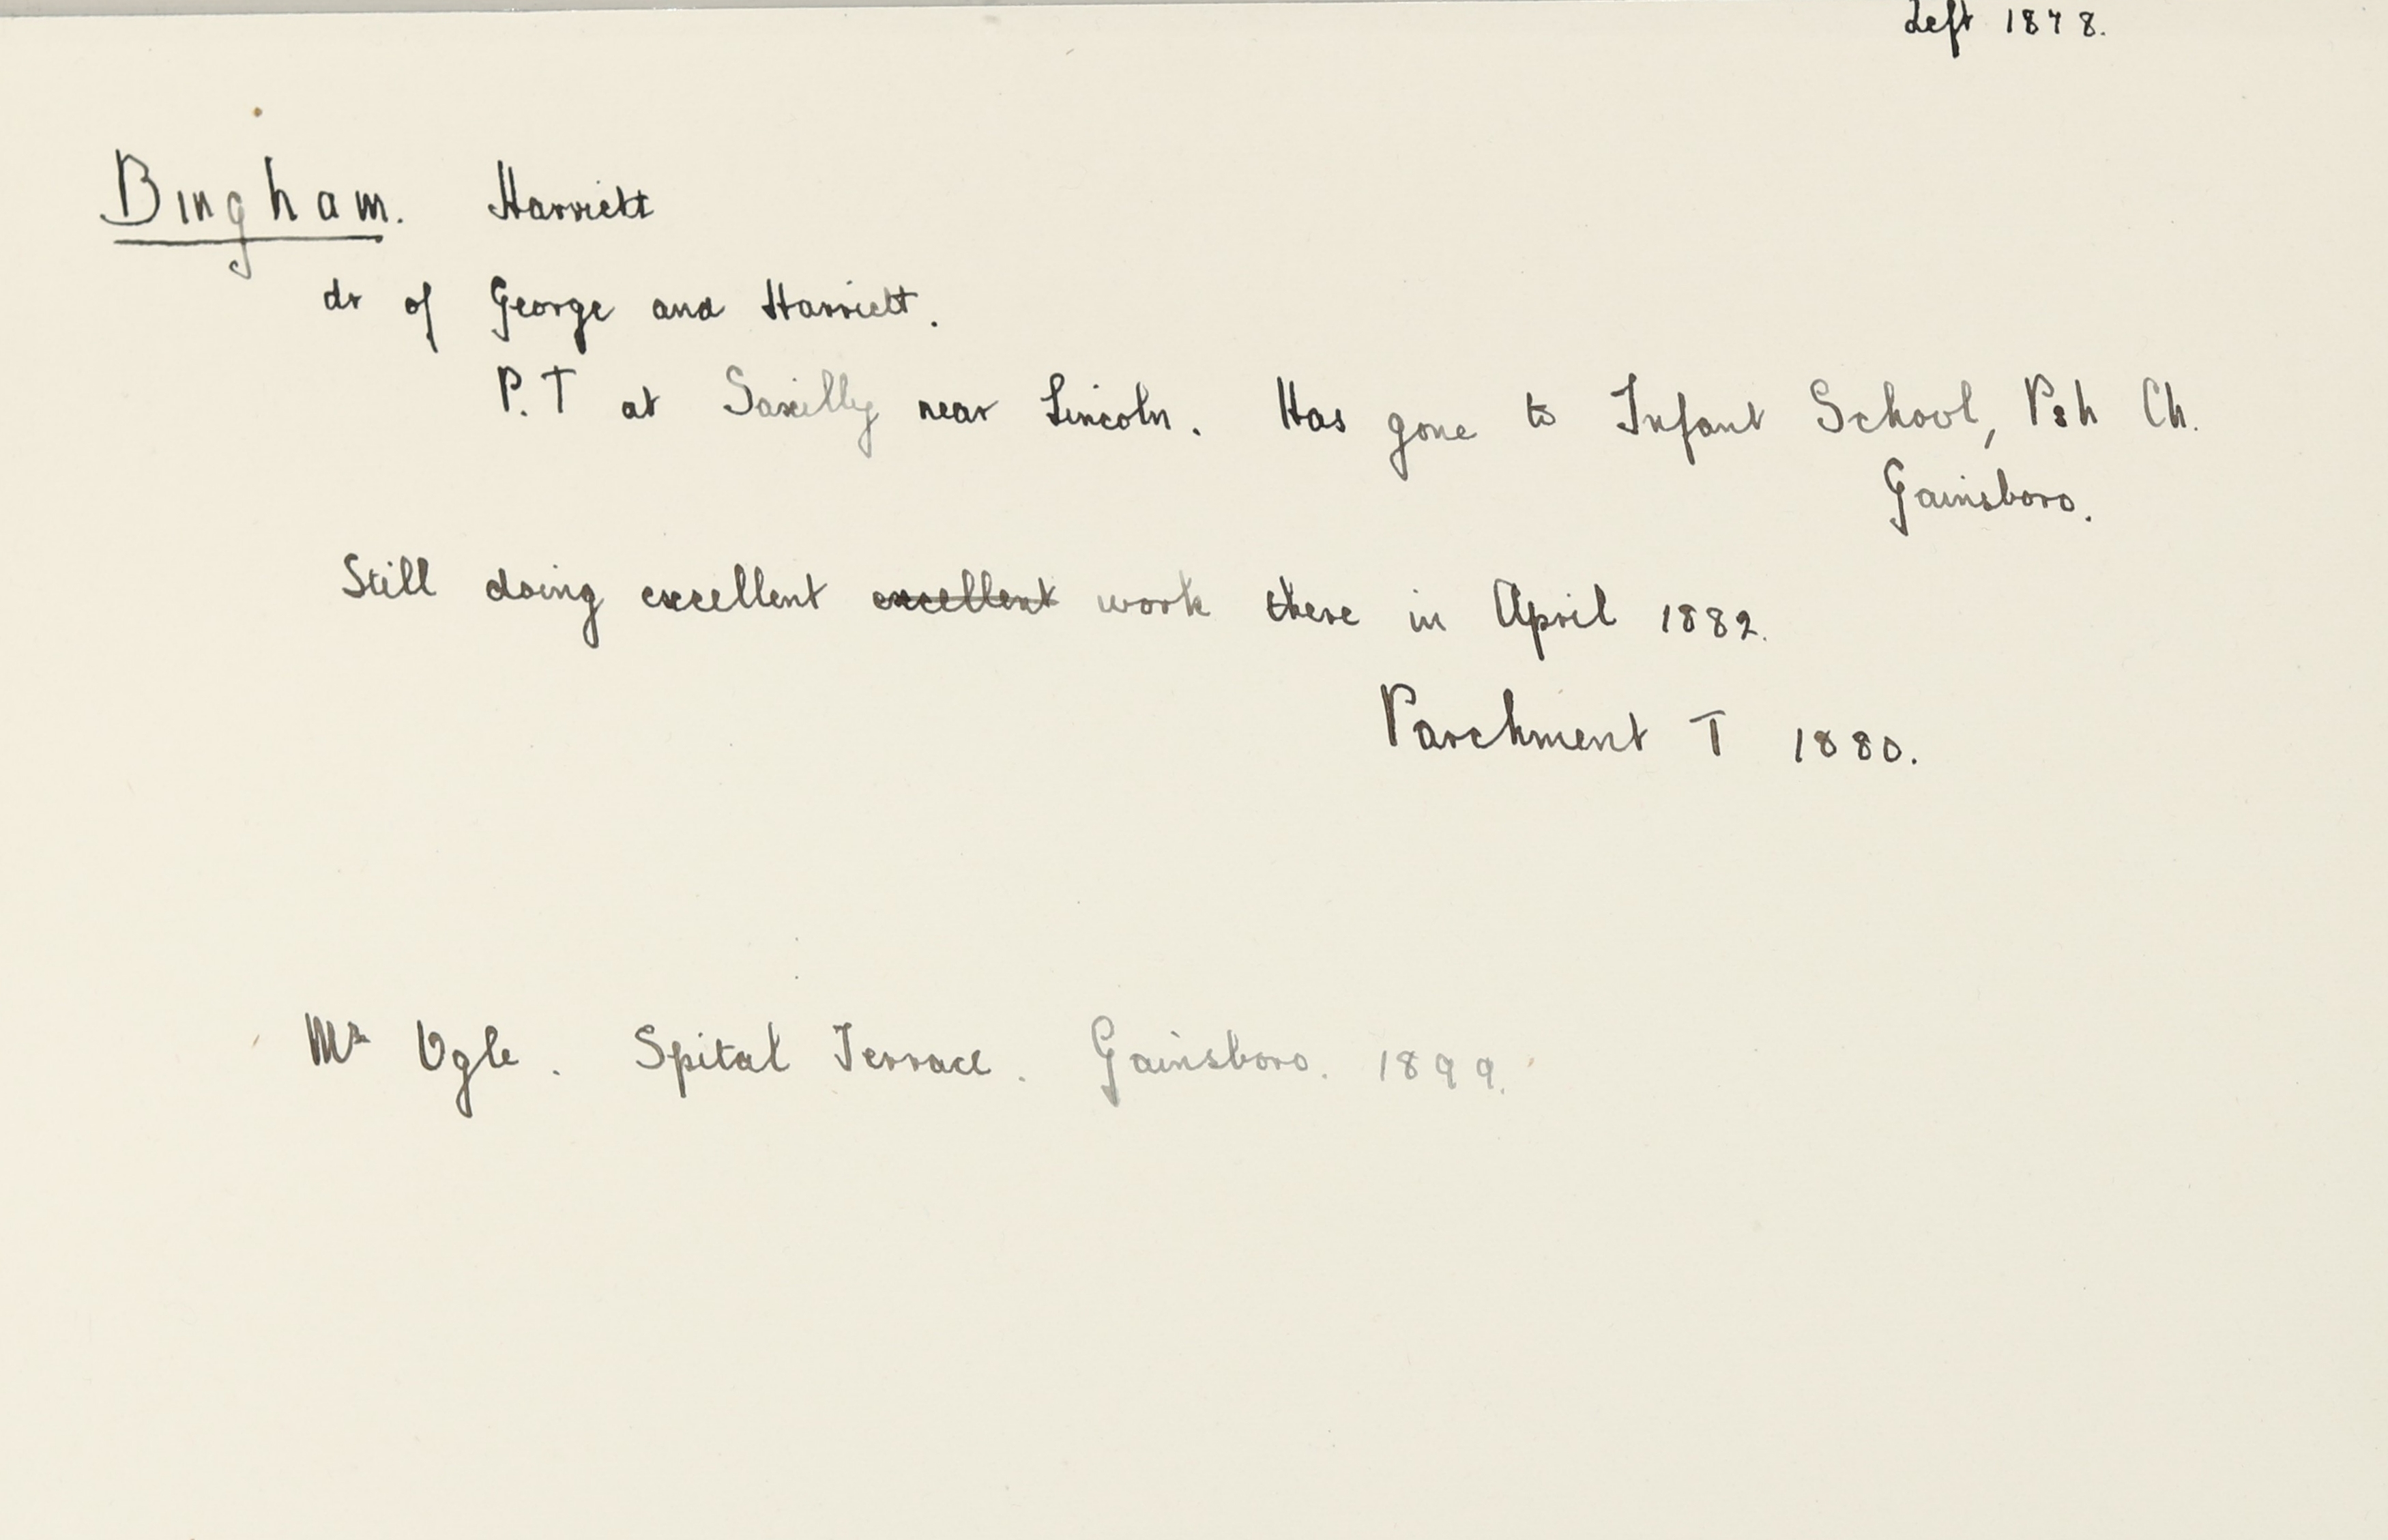 Left 1878.
Bingham. Harriett
dr of George and Harriett.
P.T at Saxilby near Lincoln. Has gone to Infant School, Psh Ch.
Gainsboro.
Still doing excellent excellent work there in April 1882.
Parchment T 1880.
Mrs Ogle. Spital Terrace. Gainsboro. 1899.